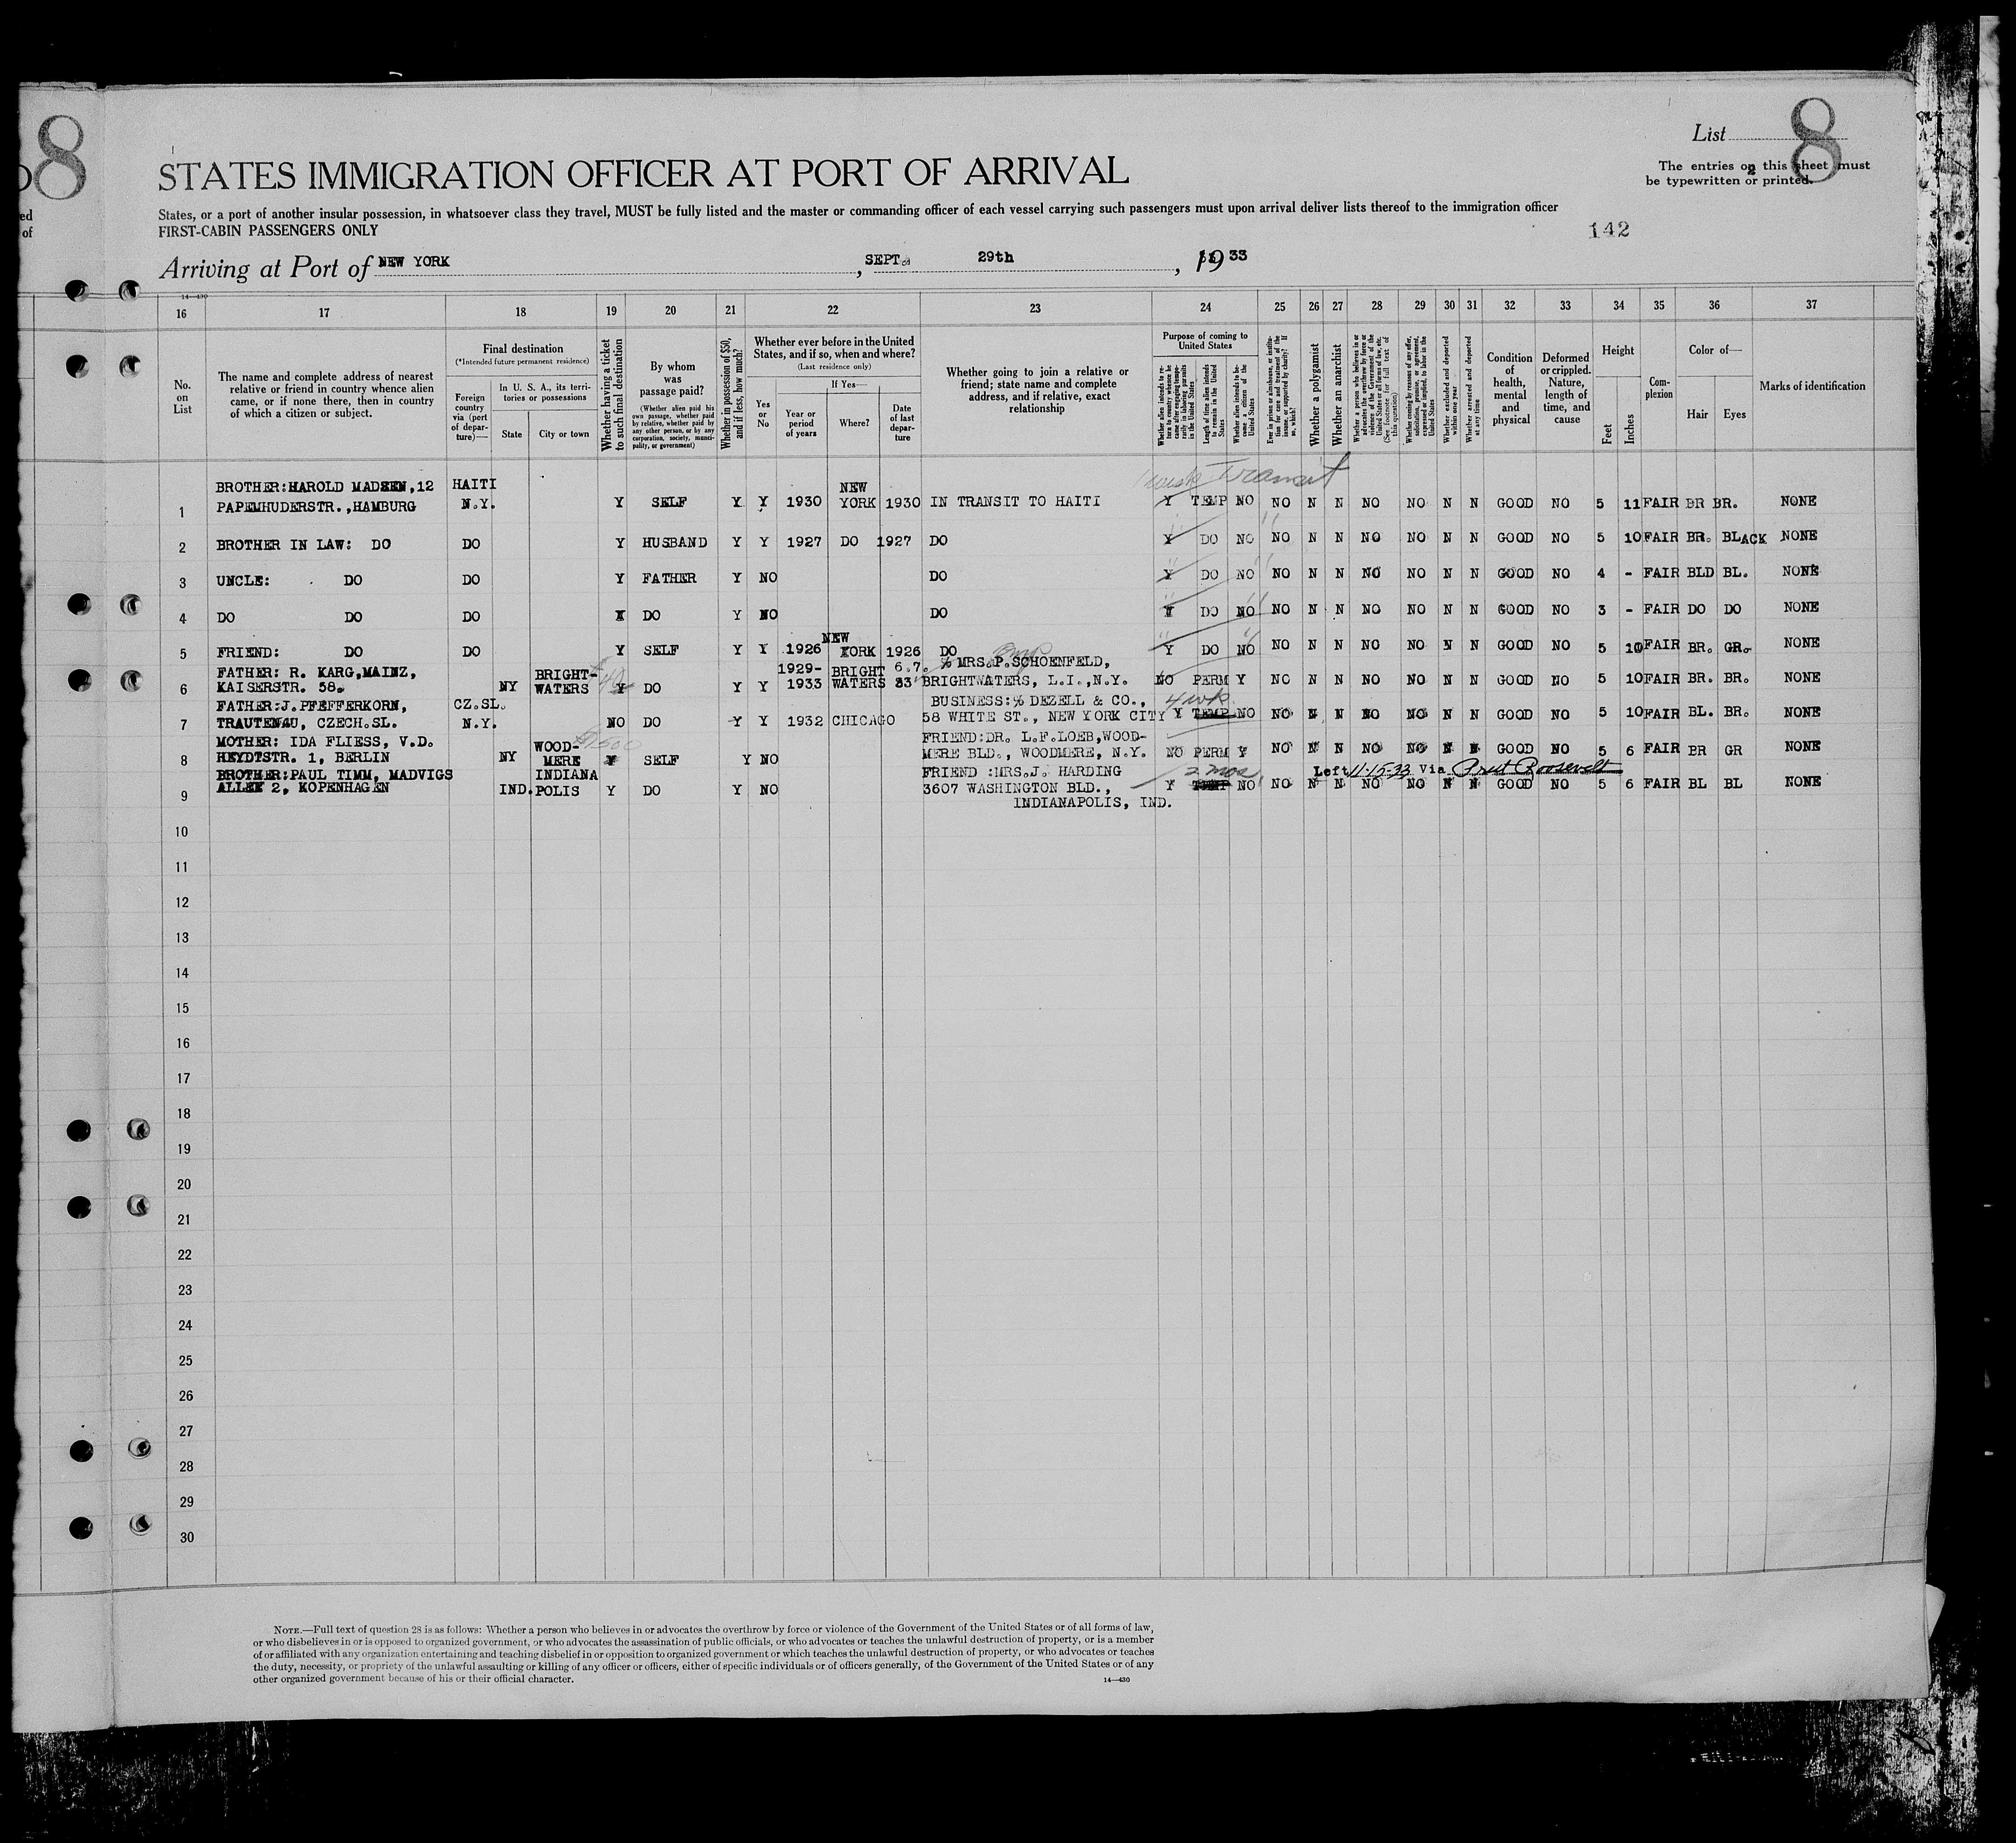 8
ed
of
List 8
STATES IMMIGRATION OFFICER AT PORT OF ARRIVAL
The entries on this sheet must
be typewritten or printed.
States, or a port of another insular possession, in whatsoever class they travel, MUST be fully listed and the master or commanding officer of each vessel carrying such passengers must upon arrival deliver lists thereof to the immigration officer
FIRST-CABIN PASSENGERS ONLY
142
Arriving at Port of NEW YORK, SEPT. 29th, 1933
14—430
16 17 18 19 20 21 22 23 24 25 26 27 28 29 30 31 32 33 34 35 36 37
No. on List
The name and complete address of nearest relative or friend in country whence alien came, or if none there, then in country of which a citizen or subject.
Final destination
(*Intended future permanent residence)
Foreign country via (port of departure)—
In U. S. A., its territories or possessions
State
City or town
Whether having a ticket to such final destination
By whom was passage paid?
(Whether alien paid his own passage, whether paid by relative, whether paid by any other person, or by any corporation, society, municipality, or government)
Whether in possession of $50, and if less, how much?
Whether ever before in the United States, and if so, when and where?
(Last residence only)
Yes or No
If Yes—
Year or period of years
Where?
Date of last departure
Whether going to join a relative or friend; state name and complete address, and if relative, exact relationship
Purpose of coming to United States
Whether alien intends to return to country whence he came after engaging temporarily in laboring pursuits in the United States
Length of time alien intends to remain in the United States
Whether alien intends to become a citizen of the United States
Ever in prison or almshouse, or institution for care and treatment of the insane, or supported by charity? If so, which?
Whether a polygamist
Whether an anarchist
Whether a person who believes in or advocates the overthrow by force or violence of the Government of the United States or all forms of law, etc. (See footnote for full text of this question)
Whether coming by reasons of any offer, solicitation, promise, or agreement, expressed or implied, to labor in the United States
Whether excluded and deported within one year
Whether arrested and deported at any time
Condition of health, mental and physical
Deformed or crippled. Nature, length of time, and cause
Height
Feet
Inches
Complexion
Color of—
Hair
Eyes
Marks of identification
Transit
BROTHER:HAROLD MADSEN,12 HAITI NEW
1 PAPEMHUDERSTR.,HAMBURG N.Y. Y SELF Y Y 1930 YORK 1930 IN TRANSIT TO HAITI Y TEMP NO NO N N NO NO N N GOOD NO 5 11 FAIR BR BR. NONE
2 BROTHER IN LAW: DO DO Y HUSBAND Y Y 1927 DO 1927 DO Y DO NO NO N N NO NO N N GOOD NO 5 10 FAIR BR. BLACK NONE
3 UNCLE: DO DO Y FATHER Y NO DO Y DO NO NO N N NO NO N N GOOD NO 4 - FAIR BLD BL. NONE
4 DO DO DO Y DO Y NO DO Y DO NO NO N N NO NO N N GOOD NO 3 - FAIR DO DO NONE
NEW
5 FRIEND: DO DO Y SELF Y Y 1926 YORK 1926 DO Y DO NO NO N N NO NO N N GOOD NO 5 10 FAIR BR. GR. NONE
FATHER: R. KARG,MAINZ, BRIGHT- 1929- BRIGHT 6.7. ℅ MRS.P.SCHOENFELD,
6 KAISERSTR. 58. NY WATERS Y DO Y Y 1933 WATERS 33 BRIGHTWATERS, L.I.,N.Y. NO PERM Y NO N N NO NO N N GOOD NO 5 10 FAIR BR. BR. NONE
FATHER:J.PFEFFERKORN, CZ.SL. BUSINESS:℅ DEZELL & CO., 4 wk
7 TRAUTENAU, CZECH.SL. N.Y. NO DO Y Y 1932 CHICAGO 58 WHITE ST., NEW YORK CITY Y TEMP NO NO N N NO NO N N GOOD NO 5 10 FAIR BL. BR. NONE
MOTHER: IDA FLIESS, V.D. WOOD- FRIEND:DR. L.F.LOEB,WOOD-
8 HEYDTSTR. 1, BERLIN NY MERE Y SELF Y NO MERE BLD., WOODMERE, N.Y. NO PERM Y NO N N NO NO N N GOOD NO 5 6 FAIR BR GR NONE
BROTHER:PAUL TIMM, MADVIGS INDIANA FRIEND :MRS.J. HARDING 2 mos Left 11-15-33 Via Prest Roosevelt
9 ALLEE 2, KOPENHAGEN IND. POLIS Y DO Y NO 3607 WASHINGTON BLD., Y TEMP NO NO N N NO NO N N GOOD NO 5 6 FAIR BL BL NONE
INDIANAPOLIS, IND.
10
11
12
13
14
15
16
17
18
19
20
21
22
23
24
25
26
27
28
29
30
NOTE.—Full text of question 28 is as follows: Whether a person who believes in or advocates the overthrow by force or violence of the Government of the United States or of all forms of law,
or who disbelieves in or is opposed to organized government, or who advocates the assassination of public officials, or who advocates or teaches the unlawful destruction of property, or is a member
of or affiliated with any organization entertaining and teaching disbelief in or opposition to organized government or which teaches the unlawful destruction of property, or who advocates or teaches
the duty, necessity, or propriety of the unlawful assaulting or killing of any officer or officers, either of specific individuals or of officers generally, of the Government of the United States or of any
other organized government because of his or their official character.
14—430